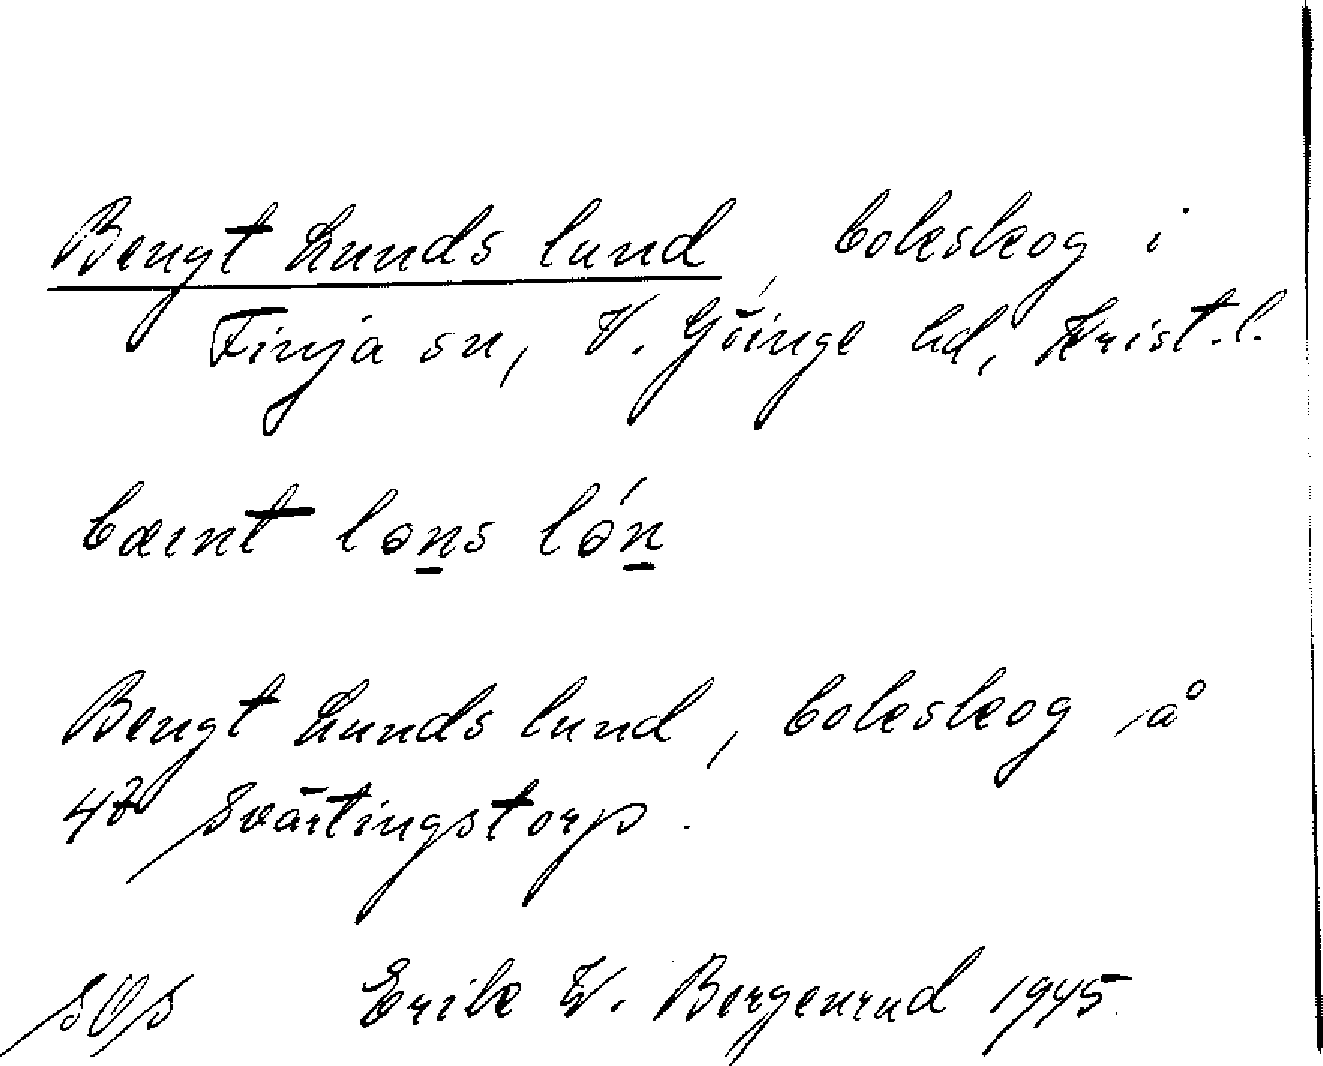 Bengt Lunds lund, bokskog i
Finja sn, V. Göinge hd, Krist. l.
bæint løns løń
Bengt Lunds lund, bokskog å
4² Svärtingstorp.
SOS Erik W. Bergenrud 1945.